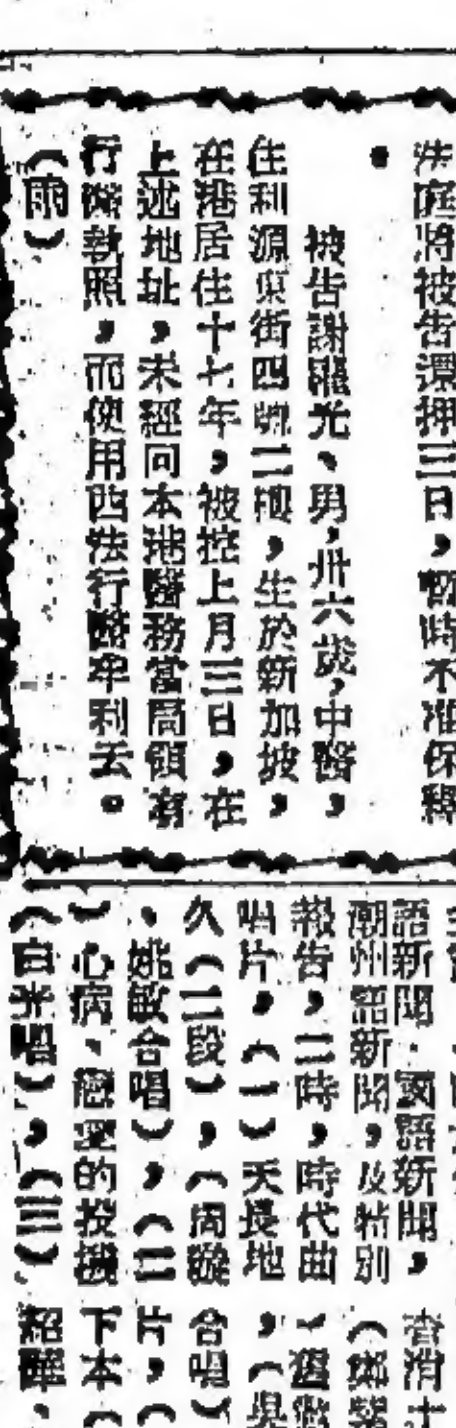 法庭將被告還押三日，暫時不准保釋
。
被告謝　光、男，卅六歲，中醫，
住利源東街四號二樓，生於新加坡，
在港居住十七年，被控上月三日，在
上述地址，未經向本港醫務當局領有
行醫執照，而使用西法行醫牟利云。
（雨）
語新聞．國語新聞，
潮州語新聞，及特別
報告，二時，時代曲
唱片，（一）天長地
久（二段），（周璇
、姚敏合唱），（二
）心病、戀愛的投機
（白光唱），（三）
（
合唱（
片，（
下本（